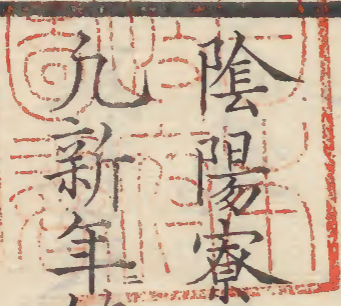 陰陽寮
九新年